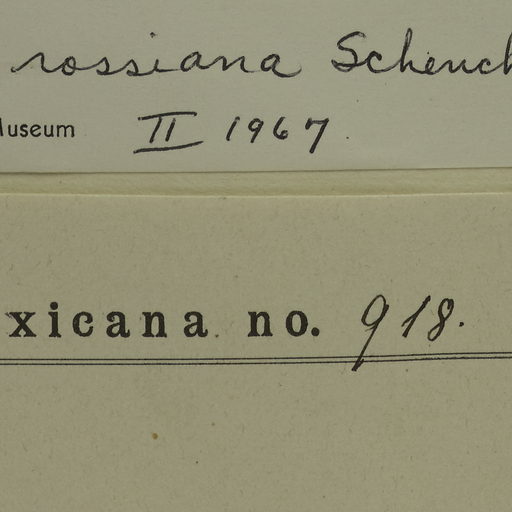 rossiana Schenck
Museum II 1967.
xicana no. 918.